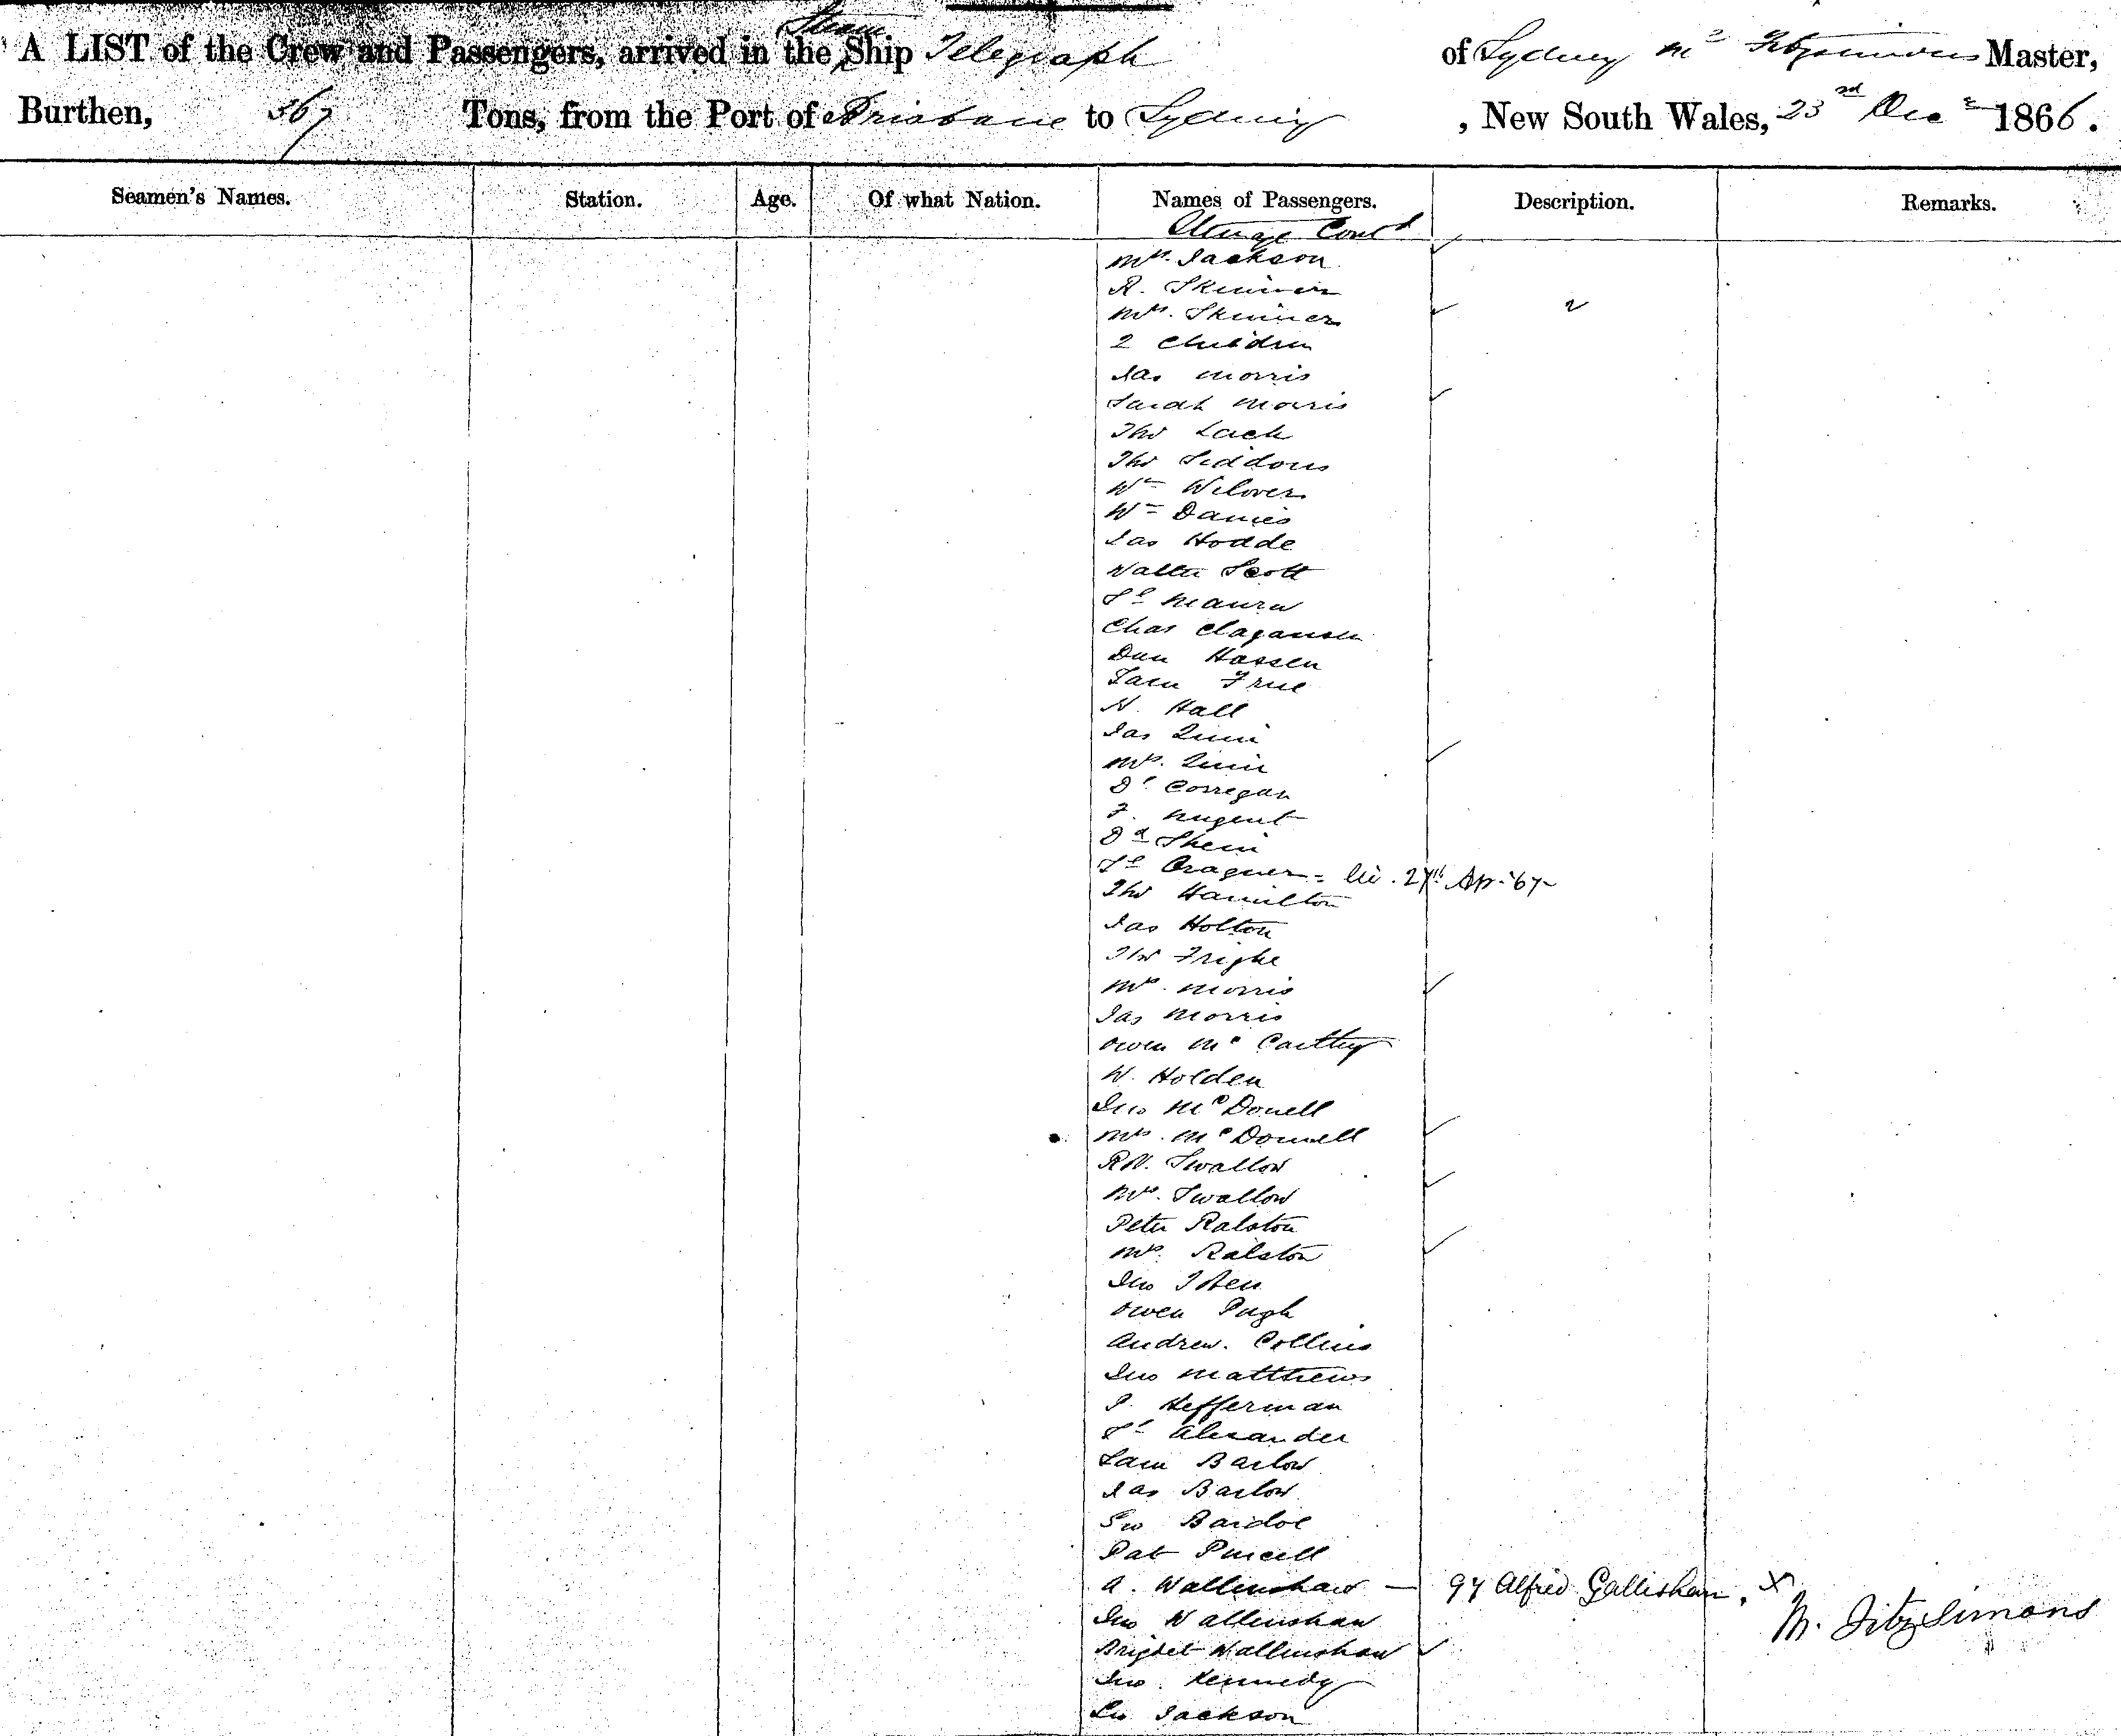 A LIST of the Crew and Passengers, arrived in the Steam Ship Telegraph of Sydney Mr Fitzsimons Master,
Burthen, 367 Tons, from the Port of Brisbane to Sydney, New South Wales, 23rd Decr 1866.
Seamen's Names. Station. Age. Of what Nation. Names of Passengers. Description. Remarks.
Steerage Contd
Mrs. Jackson
R. Skinner
Mrs. Skinner 2
2 Children
Jas Morris
Sarah Morris
Thos Lach
Thos Siddons
Wm Wilover
Wm Davies
Jas Hodde
Walter Scott
Sl
Chas
Dan Hassen
Sam True
N. Hall
Jas Quin
Mrs. Quin
Dl Corregan
F. Nugent
Dd
Sl 27th Ap. 67
Thos Hamilton
Jas Holton
Thos
Mrs. Morris
Jas Morris
Owen McCarthy
W. Holden
Jno McDonell
Mrs. McDonnell
R.W. Swallow
Mrs. Swallow
Peter Ralston
Mrs. Ralston
Jno
Owen Pugh
Andrew. Collins
Jno Matthews
P. Hefferman
Sl Alexander
Sam Barlow
Jas Barlow
Geo Bardol
Pat Purcell
A. Wallenshaw — 97 Alfred Gallishan. X
Jno Wallenshaw M. Fitzsimons
Bridget Wallenshaw
Jno. Kennedy
Jackson